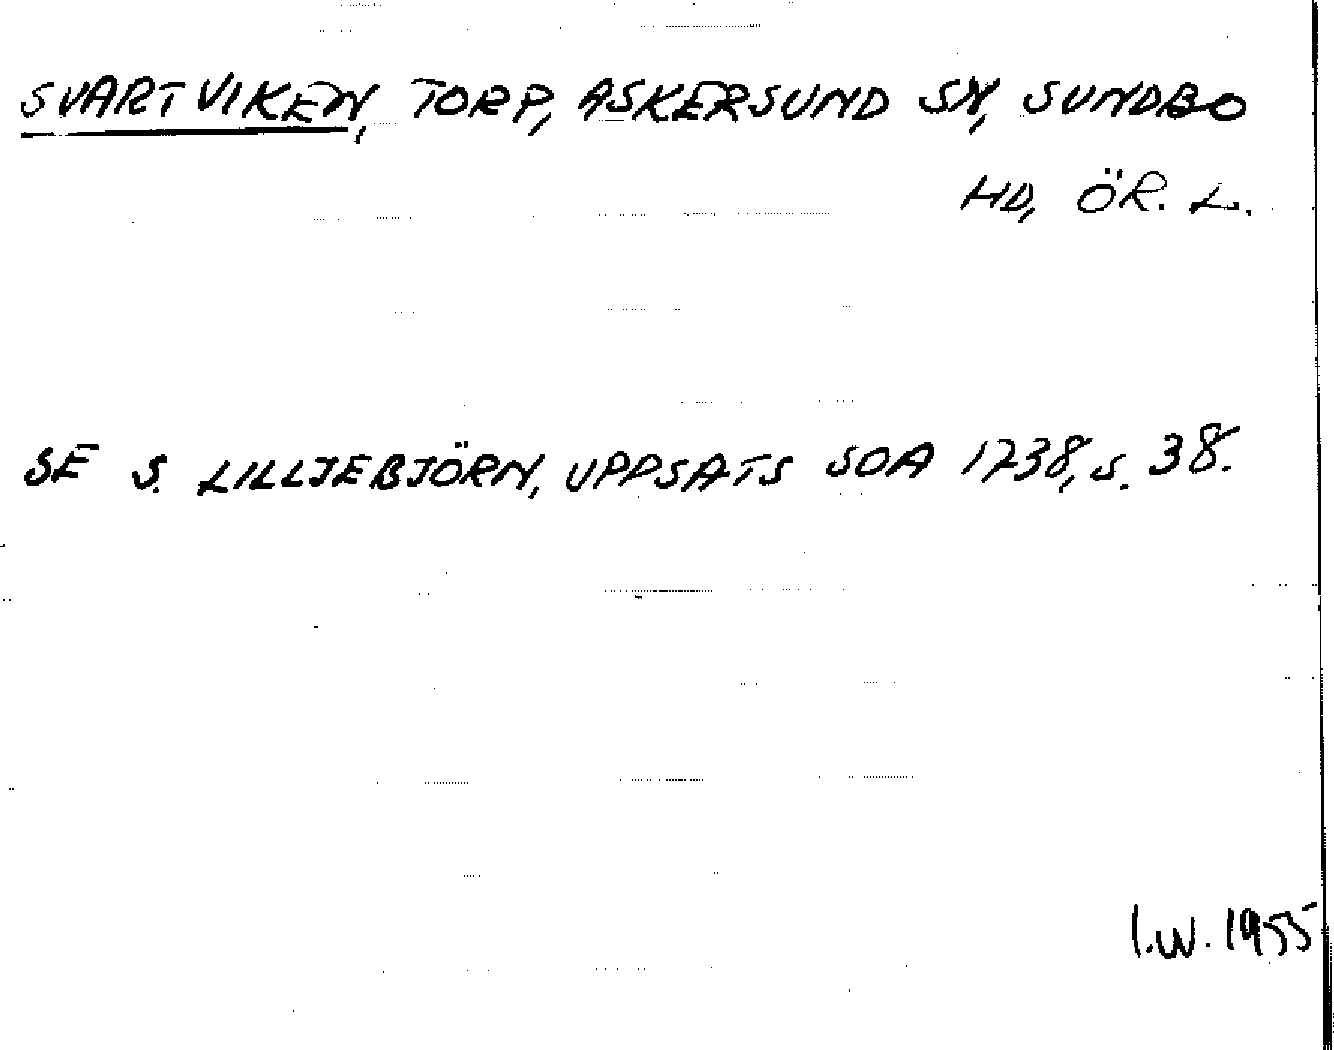 SVARTVIKEN, TORP, ASKERSUND SN, SUNDBO
HD, ÖR. L.
SE S. LILLJEBJÖRN, UPPSATS SOA 1738, S. 38.
I.W. 1955